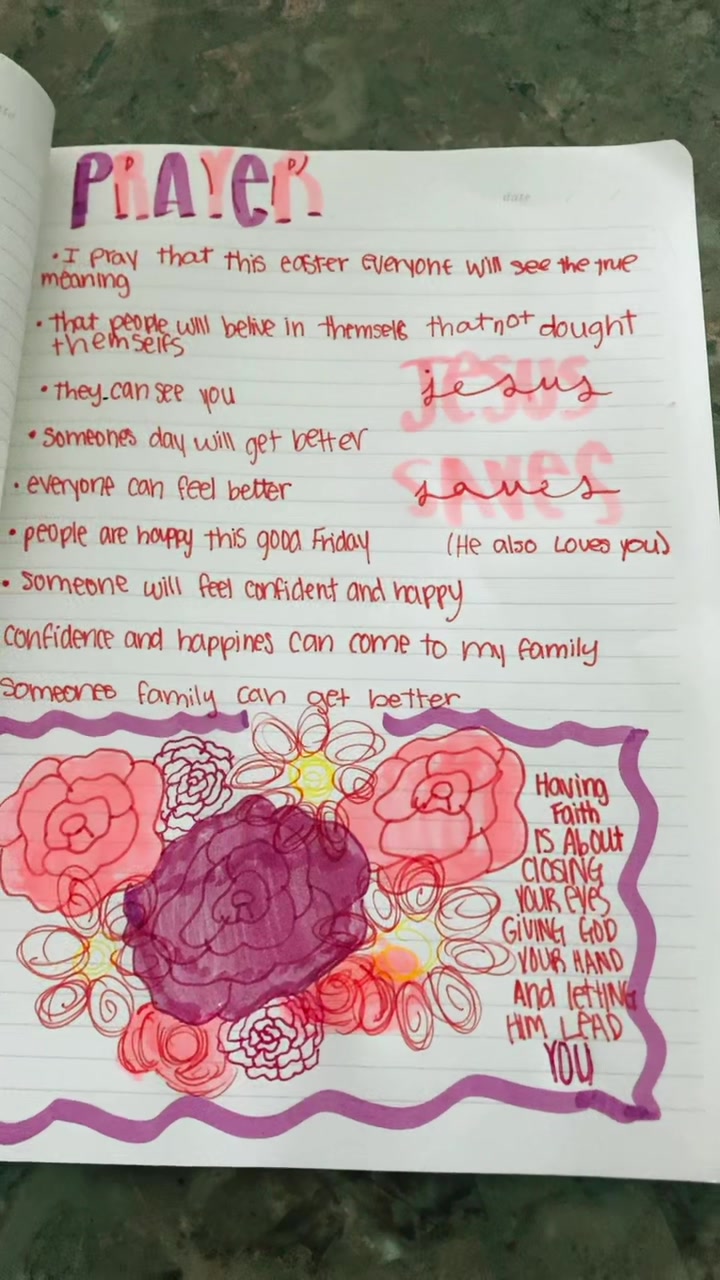 PRAYER
date
• I pray that this easter everyone will see the true
meaning
• that people will belive in themself that not dought
themselfs
• they can see you
jesus
• someones day will get better
• everyone can feel better
saves
• people are happy this good Friday
(He also Loves you)
• someone will feel confident and happy
confidence and happines can come to my family
someones family can get better
Having
Faith
IS About
CLOSING
YOUR EYES
GIVING GOD
YOUR HAND
And letting
HIM LEAD
YOU